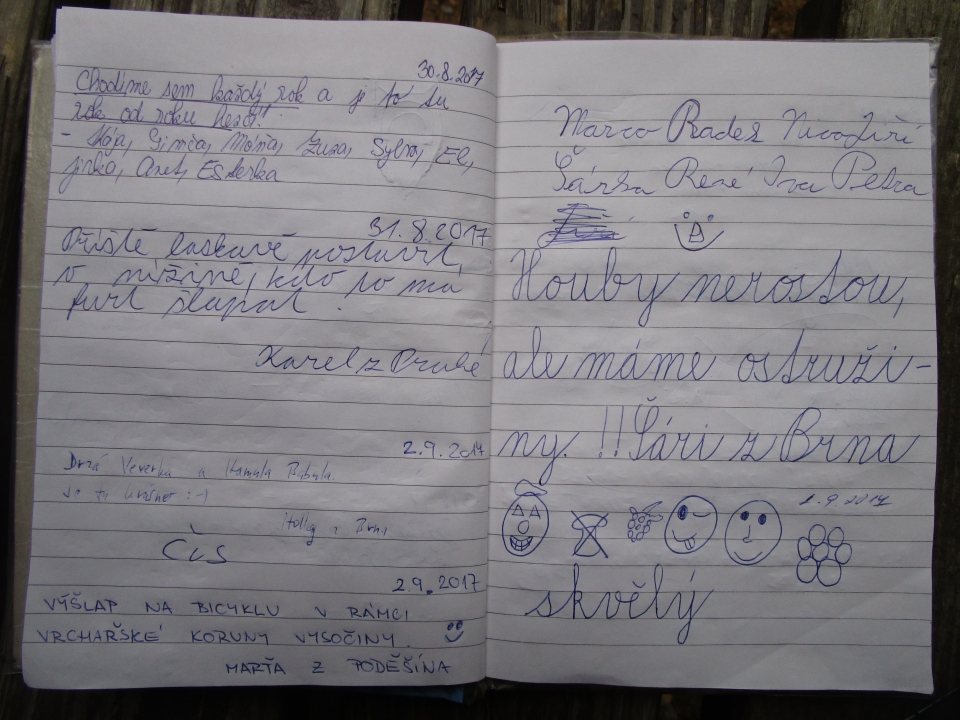 30.8.2017
Chodíme sem každý rok a je to tu
rok od roku hezčí!
- Kája, Simča, Zuza, Sylva, El,
jirka, Anet, Esterka
31.8.2017
Příště laskavě postavit
v nížině, kdo to má
furt šlapat.
Karel z Prahé
2.9.2017
Drzá Veverka a
Je tu krásně :-)
Holky z Brna
ČUS
2.9.2017
VÝŠLAP NA BICYKLU V RÁMCI
VRCHAŘSKÉ KORUNY VYSOČINY.
MARŤA Z PODĚŠÍNA
Marco Radek Nico Jiří
Šárka René Iva Petra
Houby nerostou,
ale máme ostruži-
ny. !! Šári z Brna
1.9.2017
skvělý